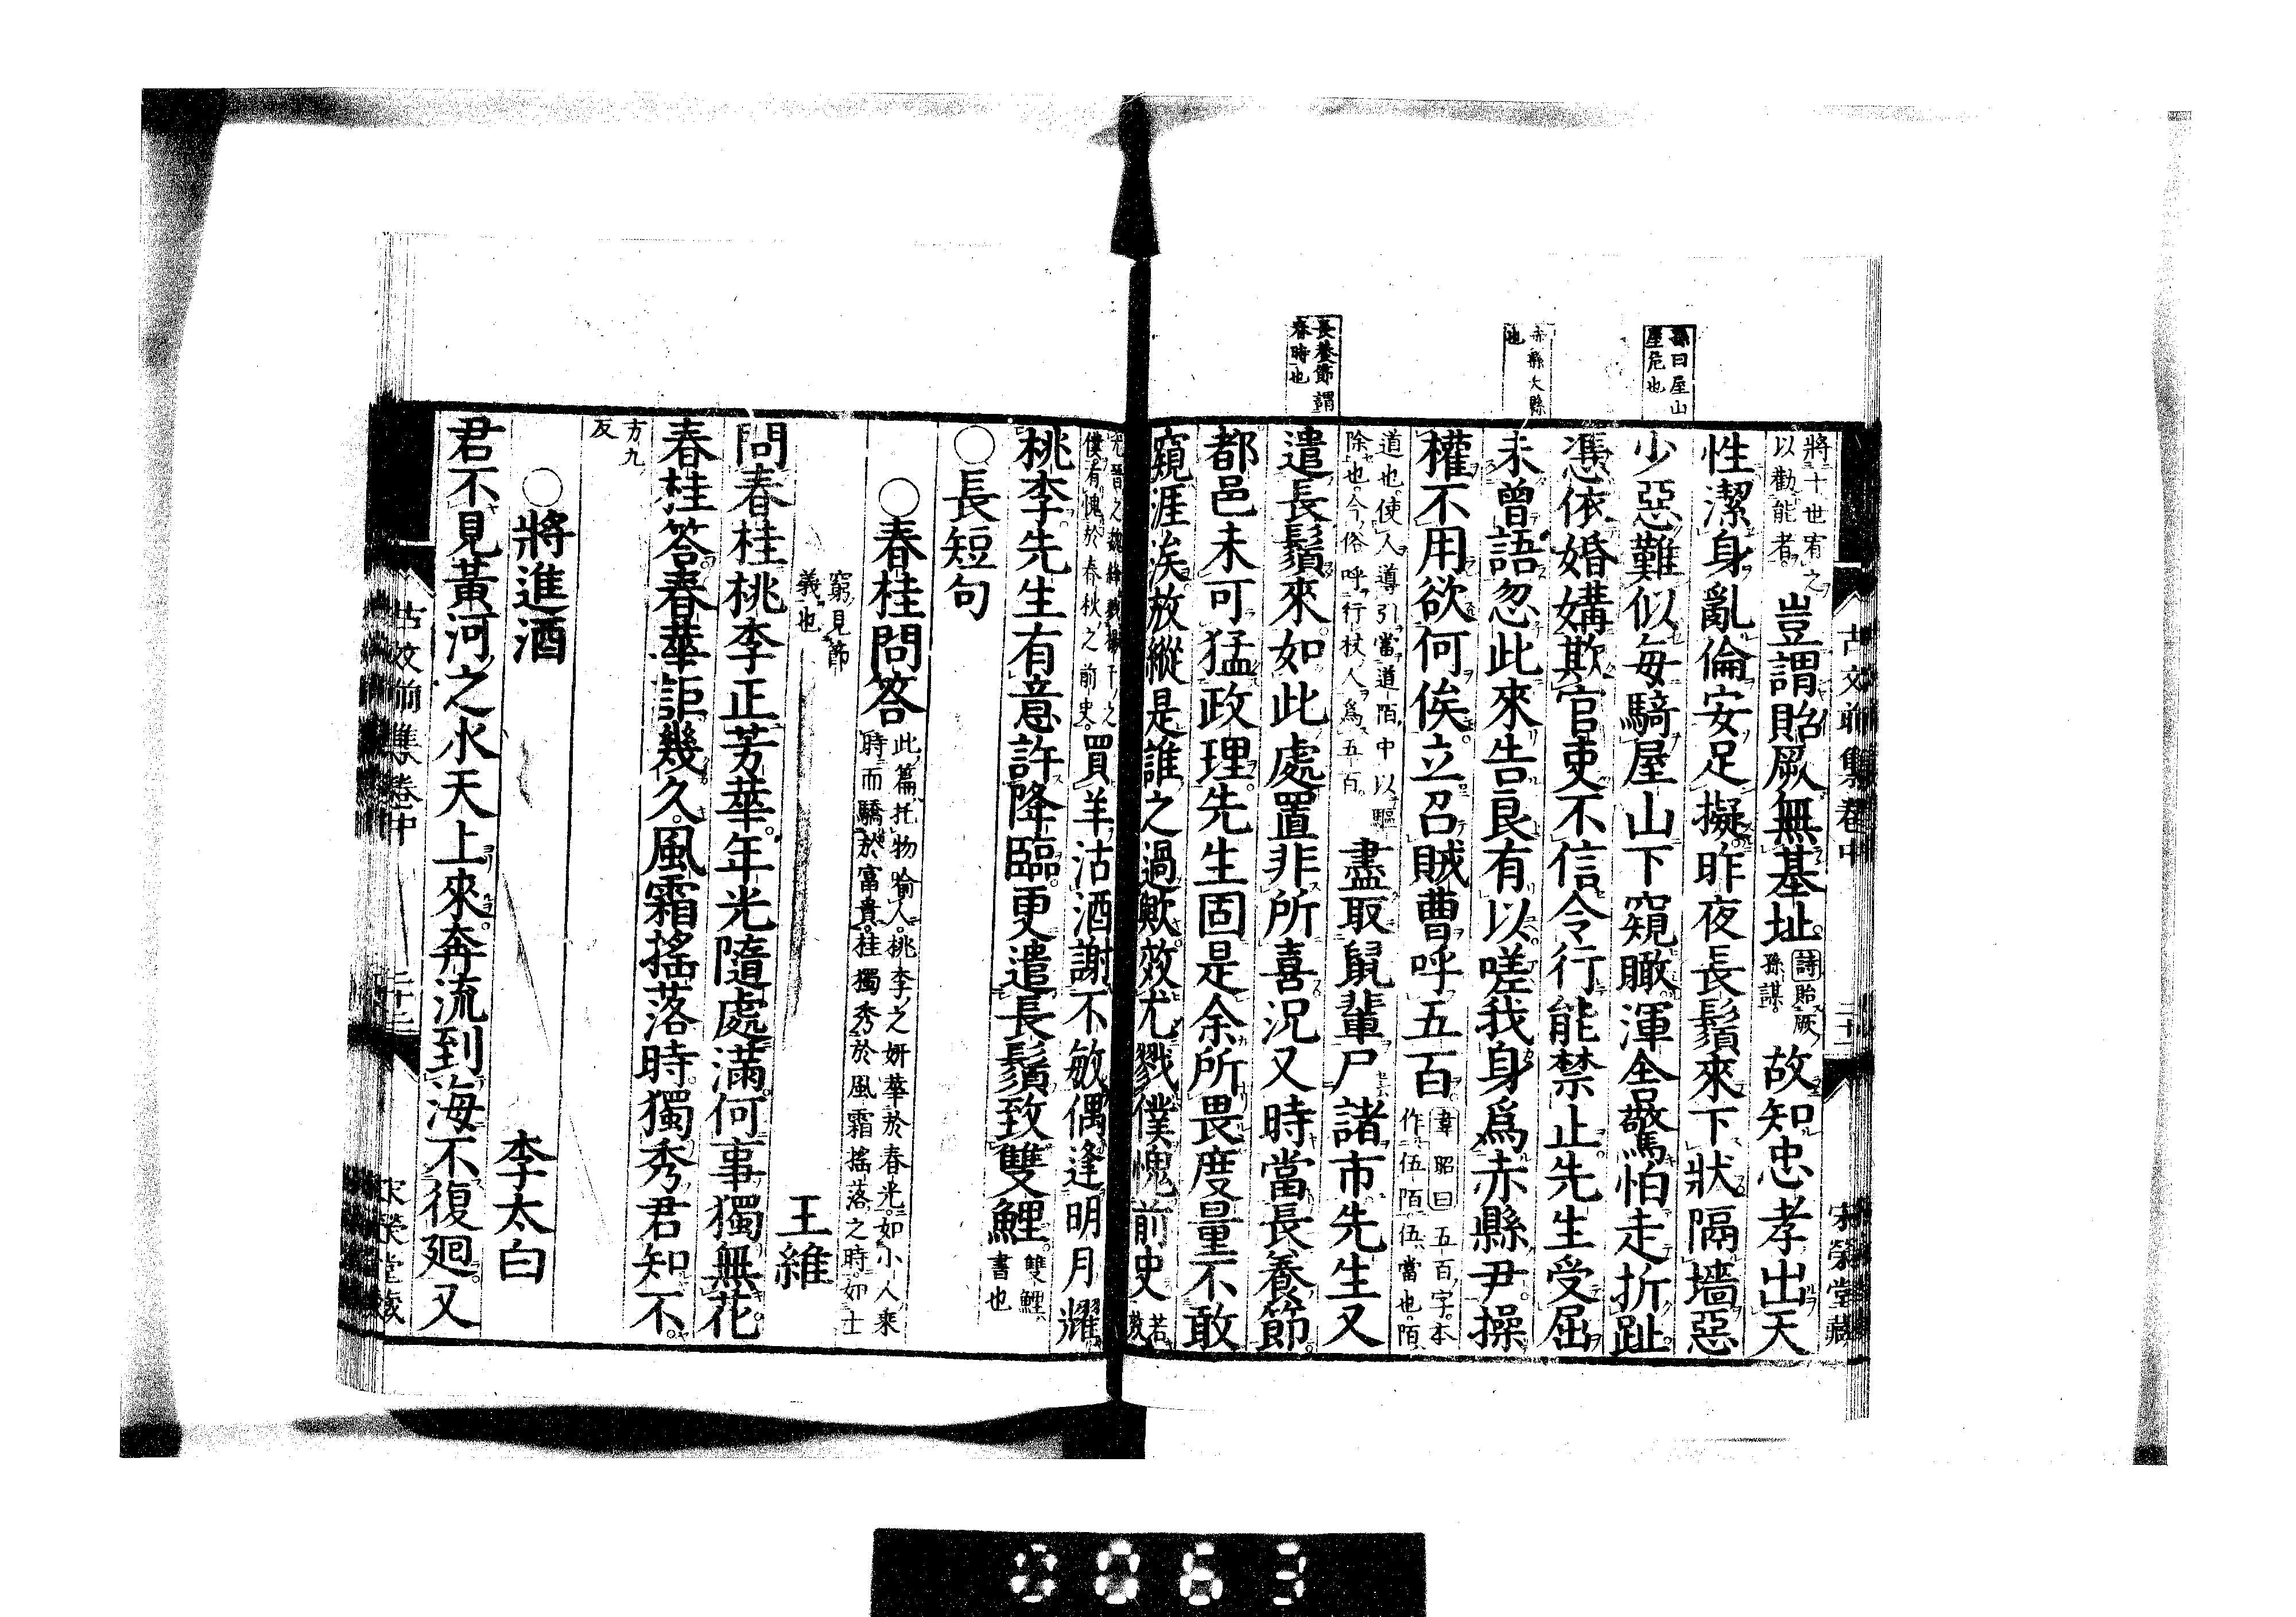 孫曰屋山
屋危也
赤縣大縣
也
長養節謂
春時也
將十世宥之
以勸能者。豈謂貽厥無基址。詩貽厥
孫謀。故知忠孝出天
性潔身亂倫安足擬。昨夜長鬚來下狀隔墻惡
少惡難似每騎屋山下窺瞰渾舍驚怕走折趾。
憑依婚媾欺官吏不信令行能禁止先生受屈
未曾語忽此來告良有以嗟我身爲赤縣尹。操
權不用欲何俟。立召賊曹呼五百。韋昭曰五百字本
作伍陌伍當也。陌
道也使人導引當道陌中以驅
除也。今俗呼行杖人爲五百。盡取鼠輩尸諸市先生又
遣長鬚來。如此處置非所喜況又時當長養節。
都邑未可猛政理。先生固是余所畏度量不敢
窺涯涘放縱是誰之過歟效尤戮僕愧前史
僕有愧於春秋之前史。買羊沽酒謝不敏偶逢明月耀
桃李。先生有意許降臨。更遣長鬚致雙鯉。雙鯉
書也
○長短句
○春桂問答 此篇托物喩人。桃李之姸華於春光。如小人乘
時而驕於富貴。桂獨秀於風霜搖落之時。如士
窮見節
義也 王維
問春桂桃李正芳華。年光隨處滿。何事獨無花。
春桂答春華詎幾久。風霜搖落時。獨秀君知不。
方九
反
○將進酒 李太白
君不見黃河之水天上來。奔流到海不復廻。又
古文前集卷中 二十二
古文前集卷中
宋榮堂藏
0063